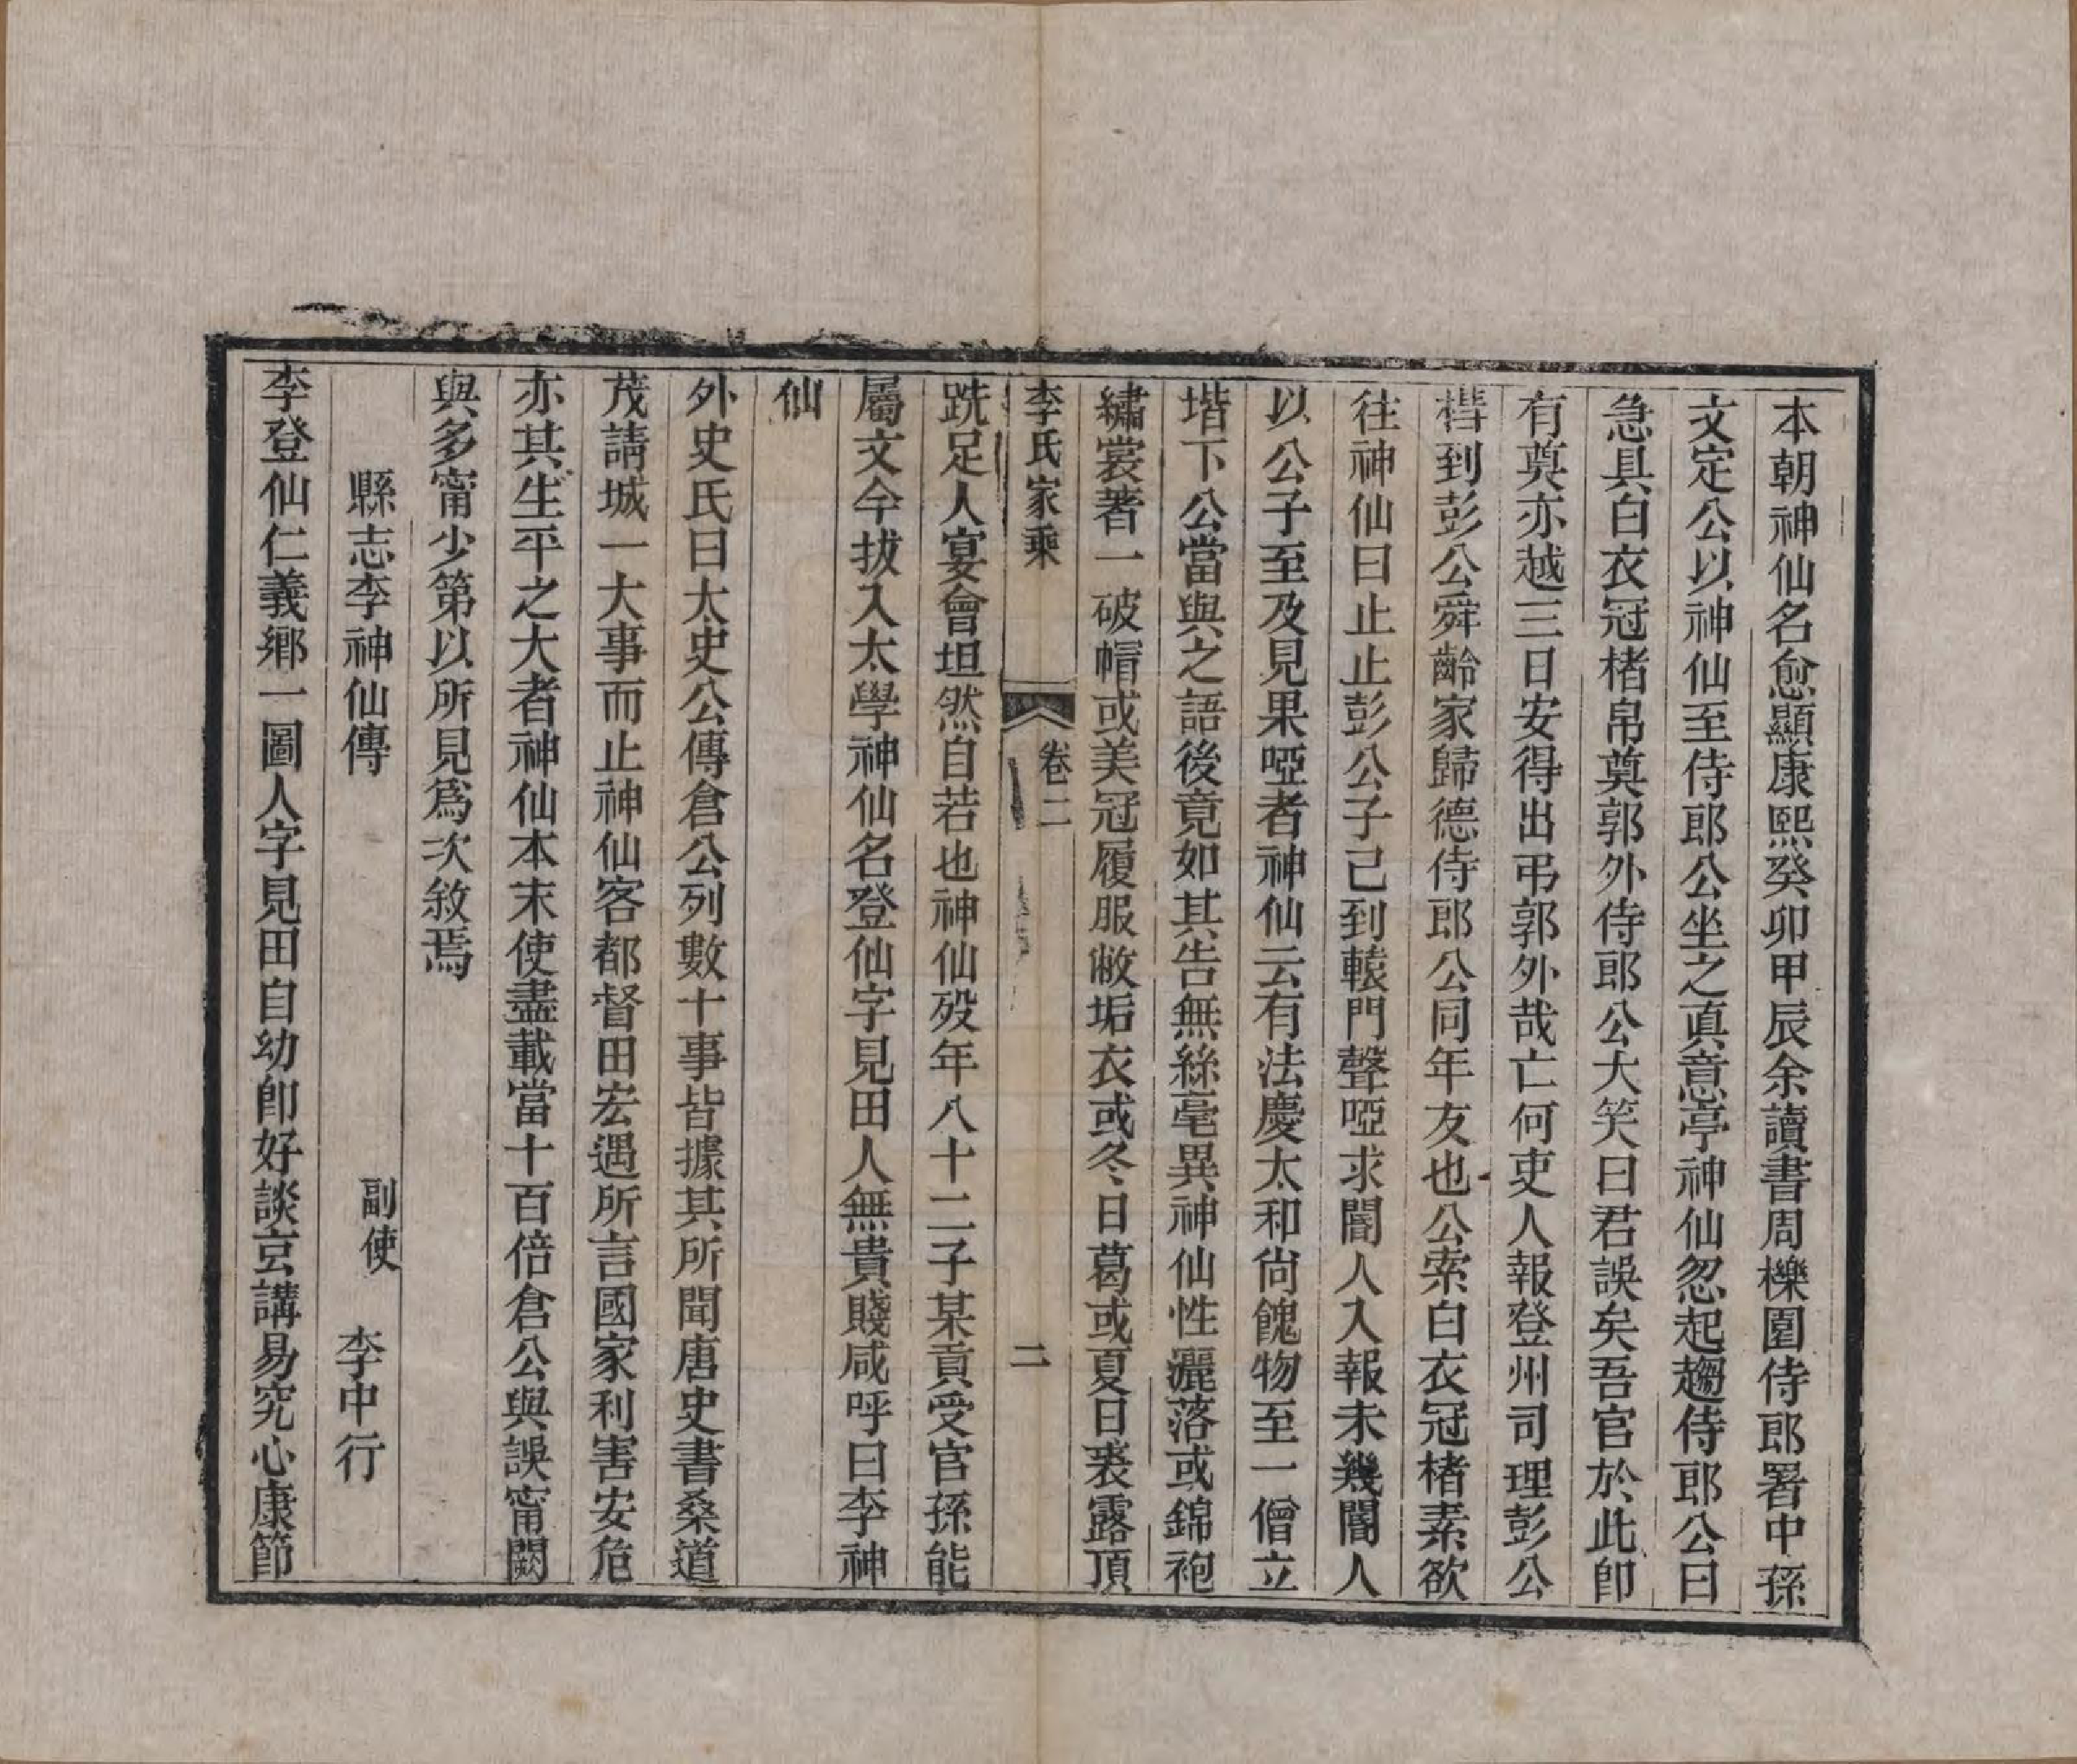 本朝神仙名愈顯康熙癸卯甲辰余讀書周櫟園侍郎署中孫
文定公以神仙至侍郎公坐之眞意亭神仙忽起趨侍郎公曰
急具白衣冠楮帛奠郭外侍郎公大笑曰君誤矣吾官於此卽
有奠亦越三日安得出弔郭外哉亡何吏人報登州司理彭公
櫘到彭公舜齡家歸德侍郎公同年友也公索白衣冠楮素欲
往神仙曰止止彭公子已到轅門聲啞求閽人入報未幾閽人
以公子至及見果啞者神仙云有法慶太和尙餽物至一僧立
堦下公當與之語後竟如其告無絲毫異神仙性灑落或錦袍
繡裳著一破帽或美冠履服敝垢衣或冬日葛或夏日裘露頂
李氏家乘 卷二 二
跣足人宴會坦然自若也神仙歿年八十二子某貢受官孫能
屬文今拔入太學神仙名登仙字見田人無貴賤咸呼曰李神
仙
外史氏曰太史公傳倉公列數十事皆據其所聞唐史書桑道
茂請城一大事而止神仙客都督田宏遇所言國家利害安危
亦其生平之大者神仙本末使盡載當十百倍倉公與誤甯闕
與多甯少第以所見爲次敘焉
縣志李神仙傳 副使 李中行
李登仙仁義鄉一圖人字見田自幼卽好談玄講易究心康節